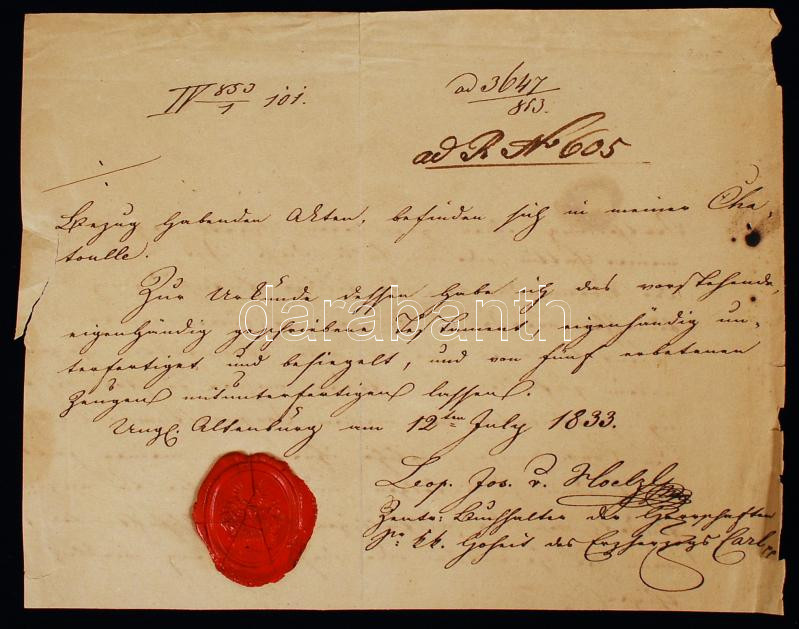 IV 853/1 101.
ad 3647/853.
ad R No 605
Bezug habenden Akten, befinden sich in meiner Cha,
toulle.
Zur Urkunde dessen habe ich das vorstehende,
eigenhändig geschriebene Testament, eigenhändig un,
terfertiget und besiegelt, und von fünf erbetenen
Zeugen mitunterfertigen lassen.
Ung. Altenburg am 12ten July 1833.
Leop. Jos. v. Hoelzl
Zentr: Buchhalter der Herrschaften
Sr kk. Hoheit des Erzherzogs Carl
darabanth